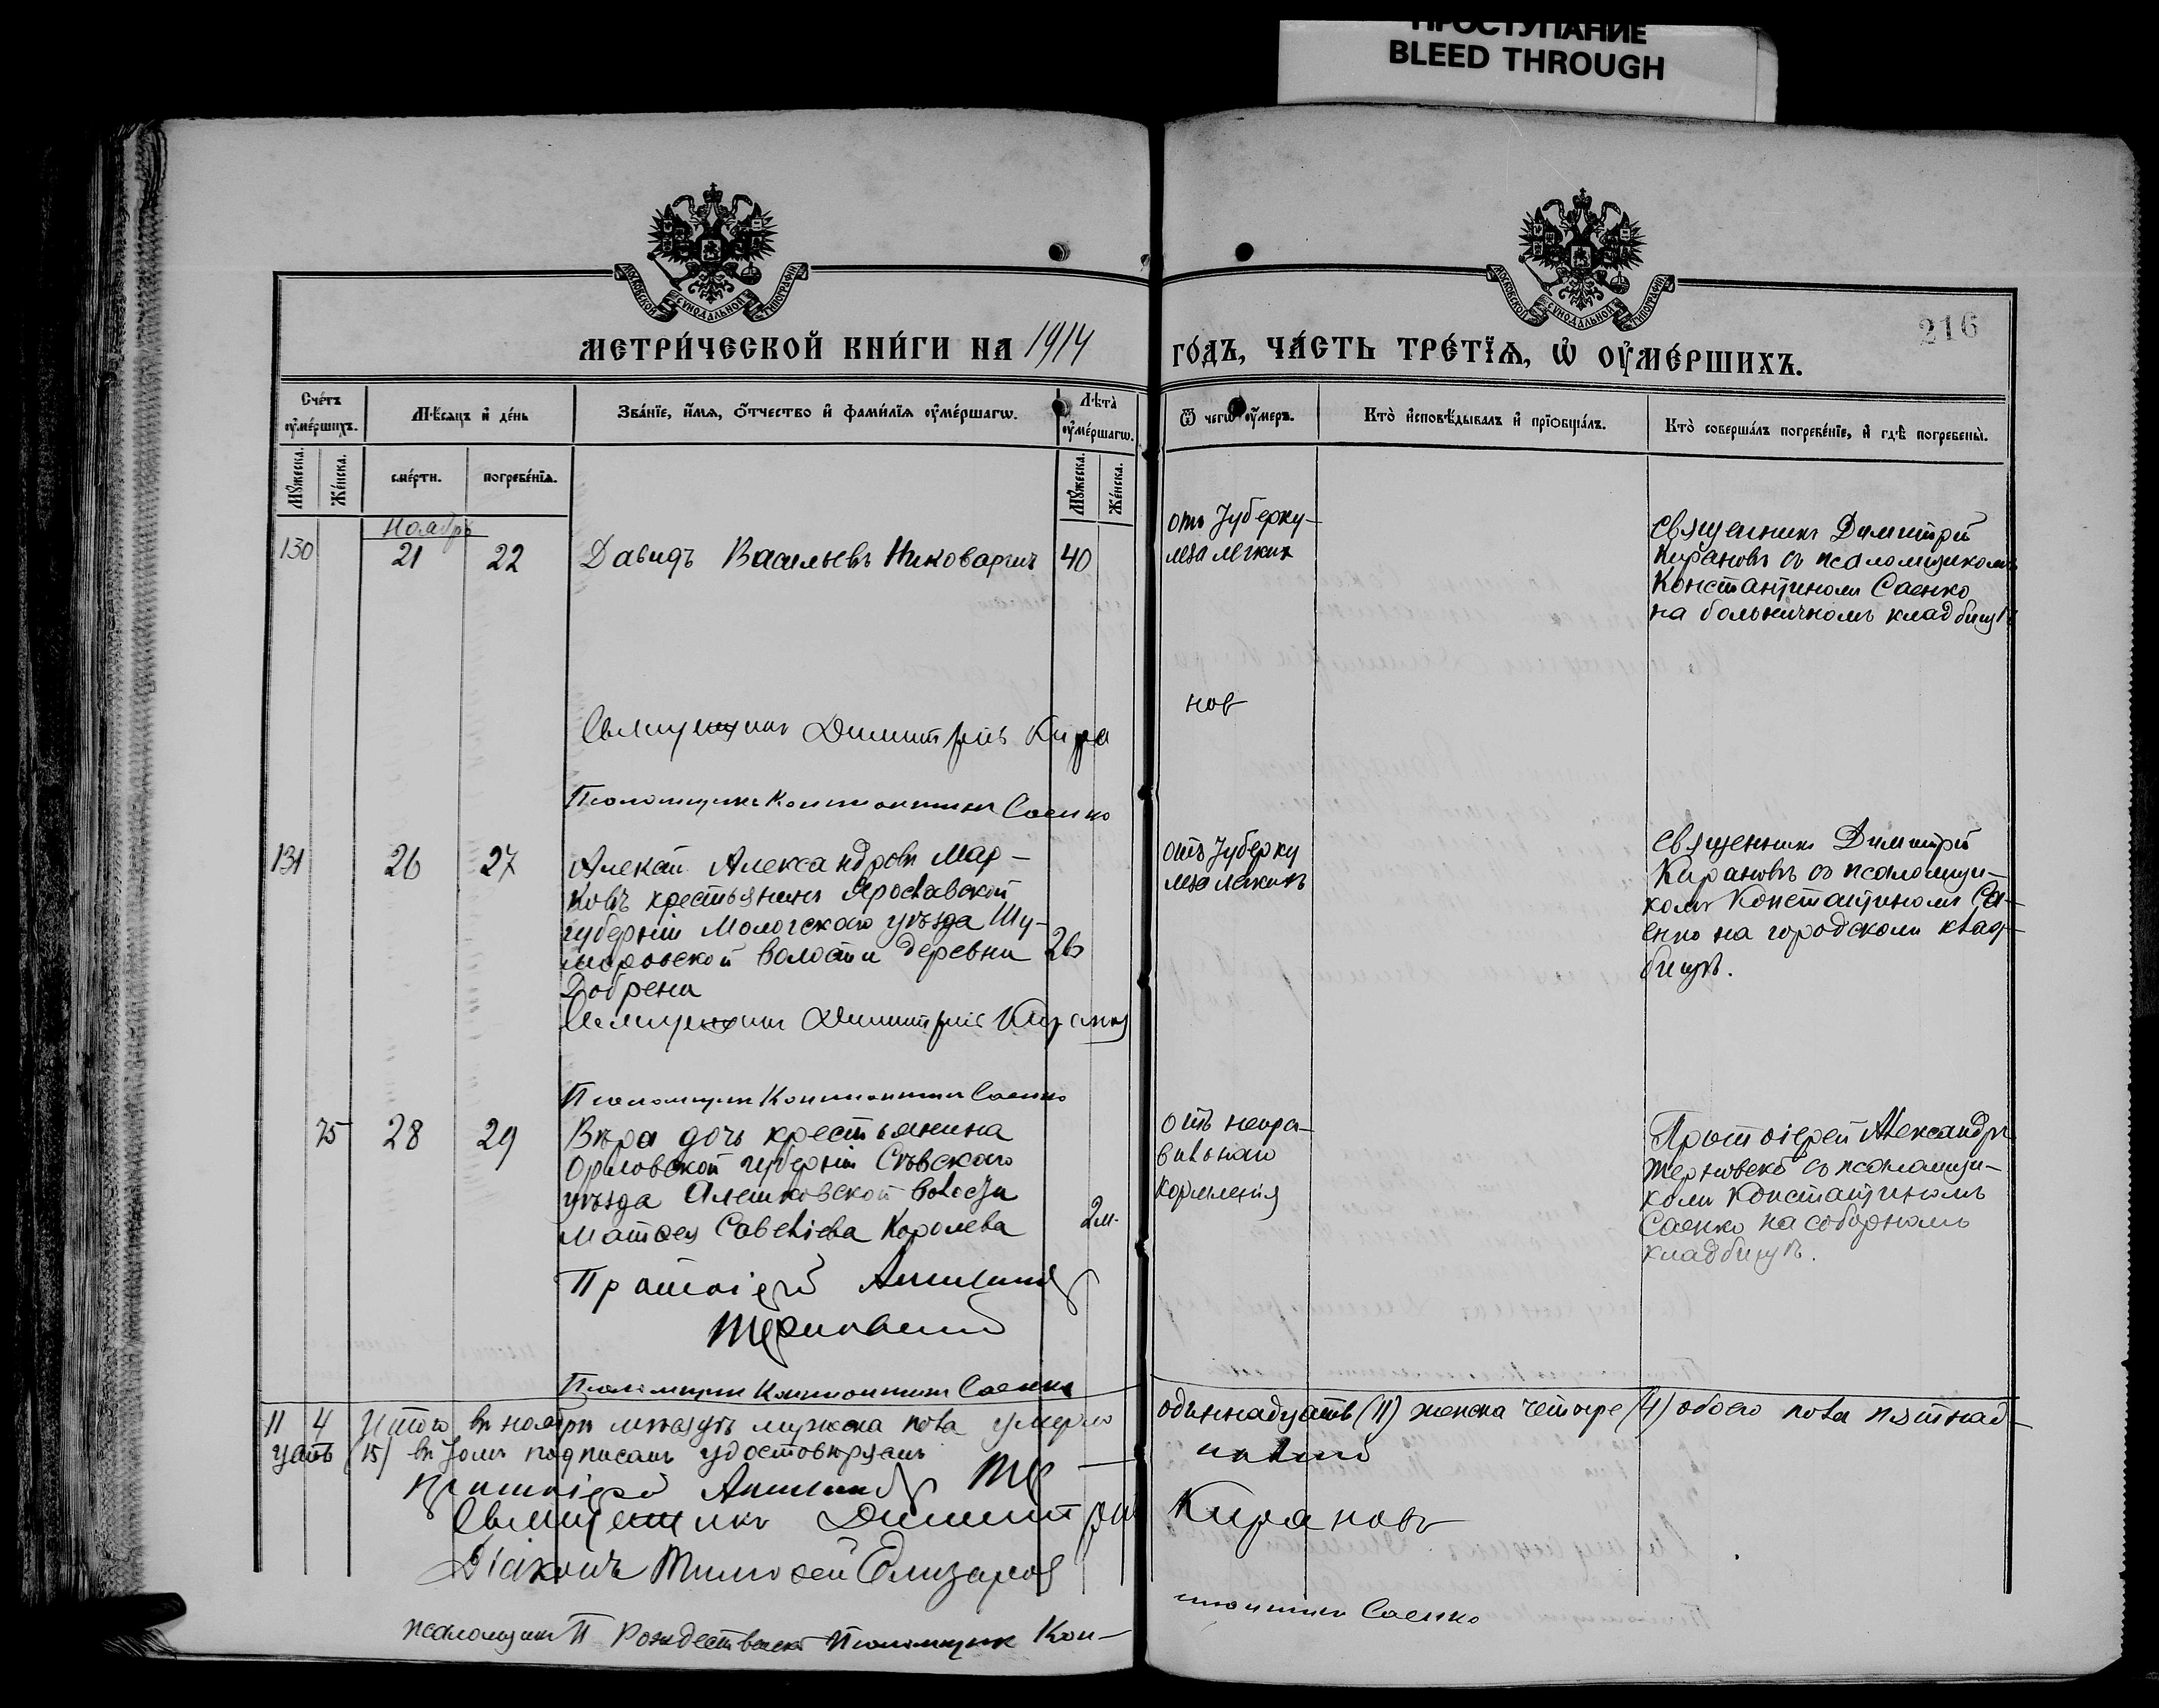 ПРОСТУПАНИЕ
BLEED THROUGH
МОСКОВСКОЙ СѴНОДАЛЬНОЙ ТИПОГРАФІИ
МОСКОВСКОЙ СѴНОДАЛЬНОЙ ТИПОГРАФІИ
216
МЕТРИ́ЧЕСКОЙ КНИ́ГИ НА 1914 ГО́ДЪ, ЧА́СТЬ ТРЕ́ТЇѦ, Ѡ҆ ОУ҆МЕ́РШИХЪ.
Сче́тъ оу҆ме́ршихъ.
Мѣ́сяцъ и҆ де́нь
Зва́нїе, и҆́мя, о҆́тчество и҆ фами́лїя оу҆ме́ршагѡ.
Лѣта̀ оу҆ме́ршагѡ.
Ѿ чегѡ̀ оу҆́меръ.
Кто̀ и҆сповѣ́дывалъ и҆ прїѻбща́лъ.
Кто̀ соверша́лъ погребе́нїе, и҆ гдѣ̀ погребены̀.
Мꙋ́жеска.
Же́нска.
сме́рти.
погребе́нїя.
Мꙋ́жеска.
Же́нска.
Ноябрь
130 21 22 Давидъ Васильевъ 40
отъ Туберку-
леза легких
Священникъ Димитрій
Кирановъ съ псаломщикомъ
Константиномъ Саенко
на больничномъ кладбищѣ
Священникъ Димитрій Кира
нов
Псаломщикъ Константинъ Саенко
131 26 27 Алексѣй Александровъ Мар-
ковъ крестьянинъ Ярославской
губерніи Мологскаго уѣзда Шу-
моровской волости деревни 26
отъ Туберку
леза легкихъ
Священникъ Димитрій
Кирановъ съ псаломщи-
комъ Константиномъ Са-
енко на городскомъ клад-
бищѣ.
Священникъ Димитрій Кирановъ
Псаломщикъ Константинъ Саенко
75 28 29 Вѣра дочь крестьянина
Орловской губерніи Сѣвскаго
уѣзда Алешковской волости
Матѳея Савеліева Королева 2м.
отъ непра-
вильнаго
кормленія
Протоіерей Александръ
Терновскій съ псаломщи-
комъ Константиномъ
Саенко на соборномъ
кладбищѣ.
Протоіерей Александръ
Терновскій
Псаломщикъ Константинъ Саенко
11 4 Итого въ ноябрѣ мѣсяцѣ мужска пола умерло одиннадцать (11) женска четыре (4) обоего пола пятнад-
цать (15) въ томъ подписомъ удостовѣряемъ
Протоіерей Александръ Тер-
новскій
Священникъ Димитрій Кирановъ
Діаконъ Тимоѳей Елизаров
псаломщикъ П Рождественскій Псаломщик Кон-
стантинъ Саенко